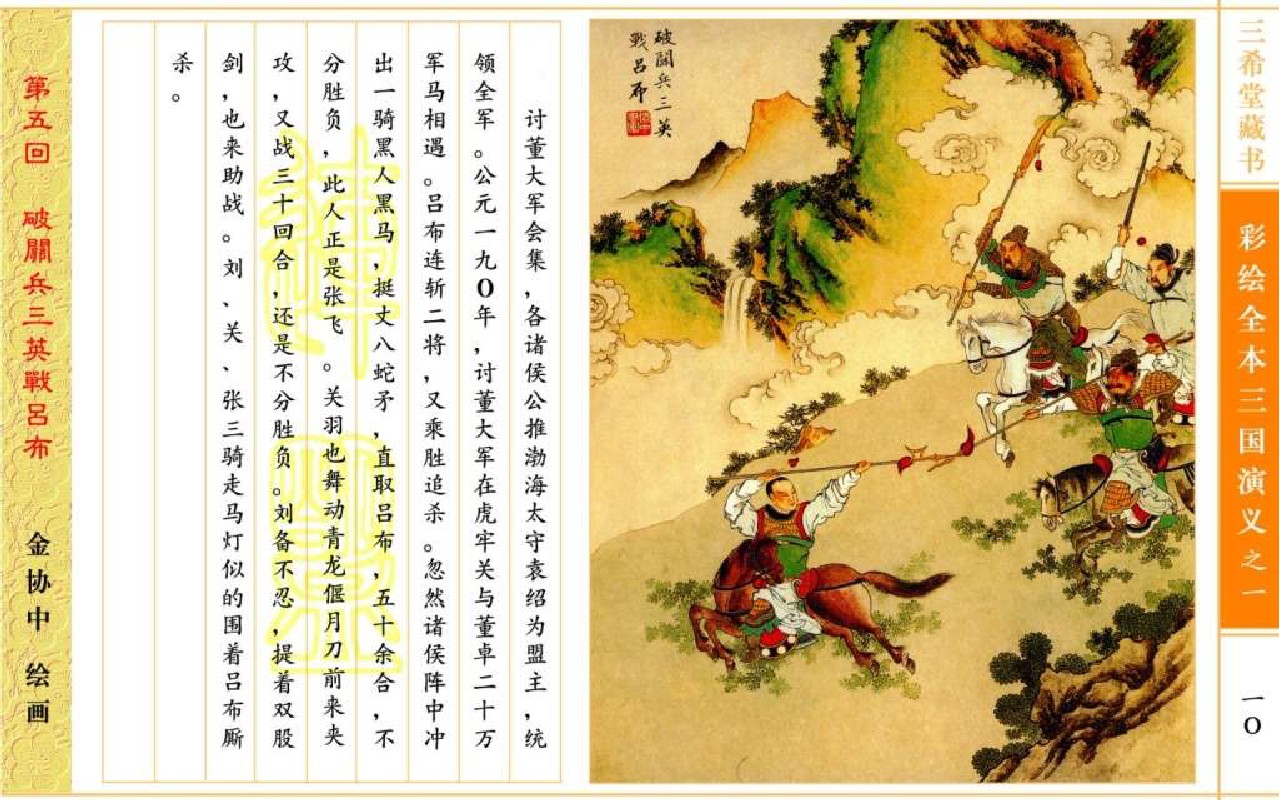 三希堂藏书
彩绘全本三国演义之一
一〇
破關兵三英
戰呂布
讨董大军会集，各诸侯公推渤海太守袁绍为盟主，统
领全军。公元一九〇年，讨董大军在虎牢关与董卓二十万
军马相遇。吕布连斩二将，又乘胜追杀。忽然诸侯阵中冲
出一骑黑人黑马，挺丈八蛇矛，直取吕布，五十余合，不
分胜负，此人正是张飞。关羽也舞动青龙偃月刀前来夹
攻，又战三十回合，还是不分胜负。刘备不忍，提着双股
剑，也来助战。刘、关、张三骑走马灯似的围着吕布厮
杀。
第五回 破關兵三英戰呂布 金协中 绘画